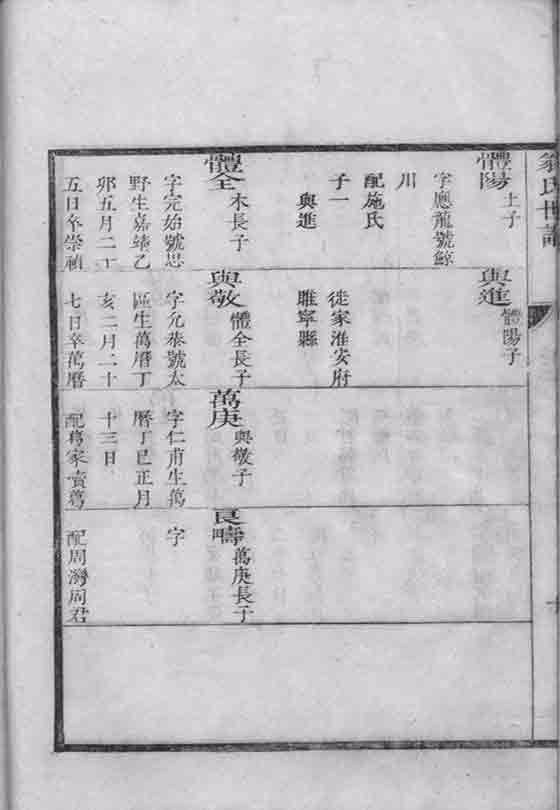 翁氏世譜
體陽 土子
字應龍號鯨
川
配施氏
子一
與進
體全 木長子
字完始號思
野生嘉靖乙
卯五月二十
五日卒崇禎
與進 體陽子
徙家淮安府
睢寧縣
與敬 體全長子
字允恭號太
區生萬曆丁
亥二月二十
七日卒萬曆
萬庚 與敬子
字仁甫生萬
曆丁巳正月
十三日
配葛家賣葛
良疇 萬庚長子
字
配周灣周君